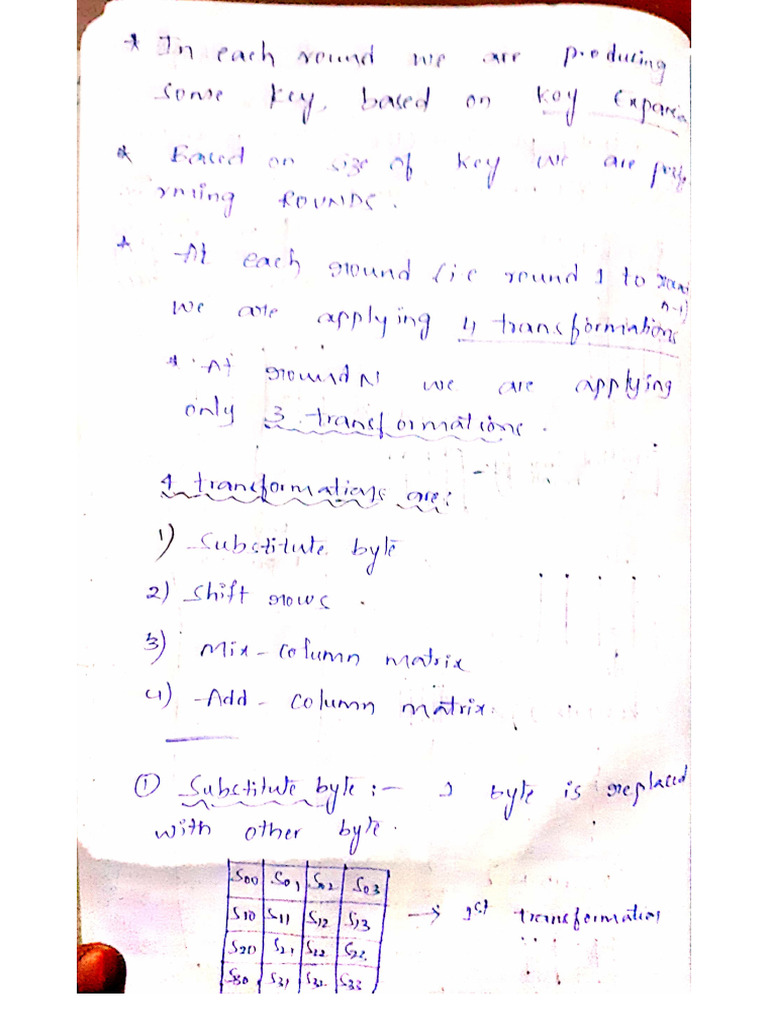 * In each round we are producing
some key, based on key Expansio
* Based on size of key we are perfo
rming ROUNDS.
* At each round (i.e round 1 to round
n-1)
we are applying 4 transformations
* At round N we are applying
only 3 transformations.
4 transformations are:
1) Substitute byte
2) Shift rows.
3) Mix-column matrix
4) Add-column matrix.
① Substitute byte :- 1 byte is replaced
with other byte.
S00 S01 S02 S03
S10 S11 S12 S13 → 1st transformation
S20 S21 S22 S22
S30 S31 S32 S33